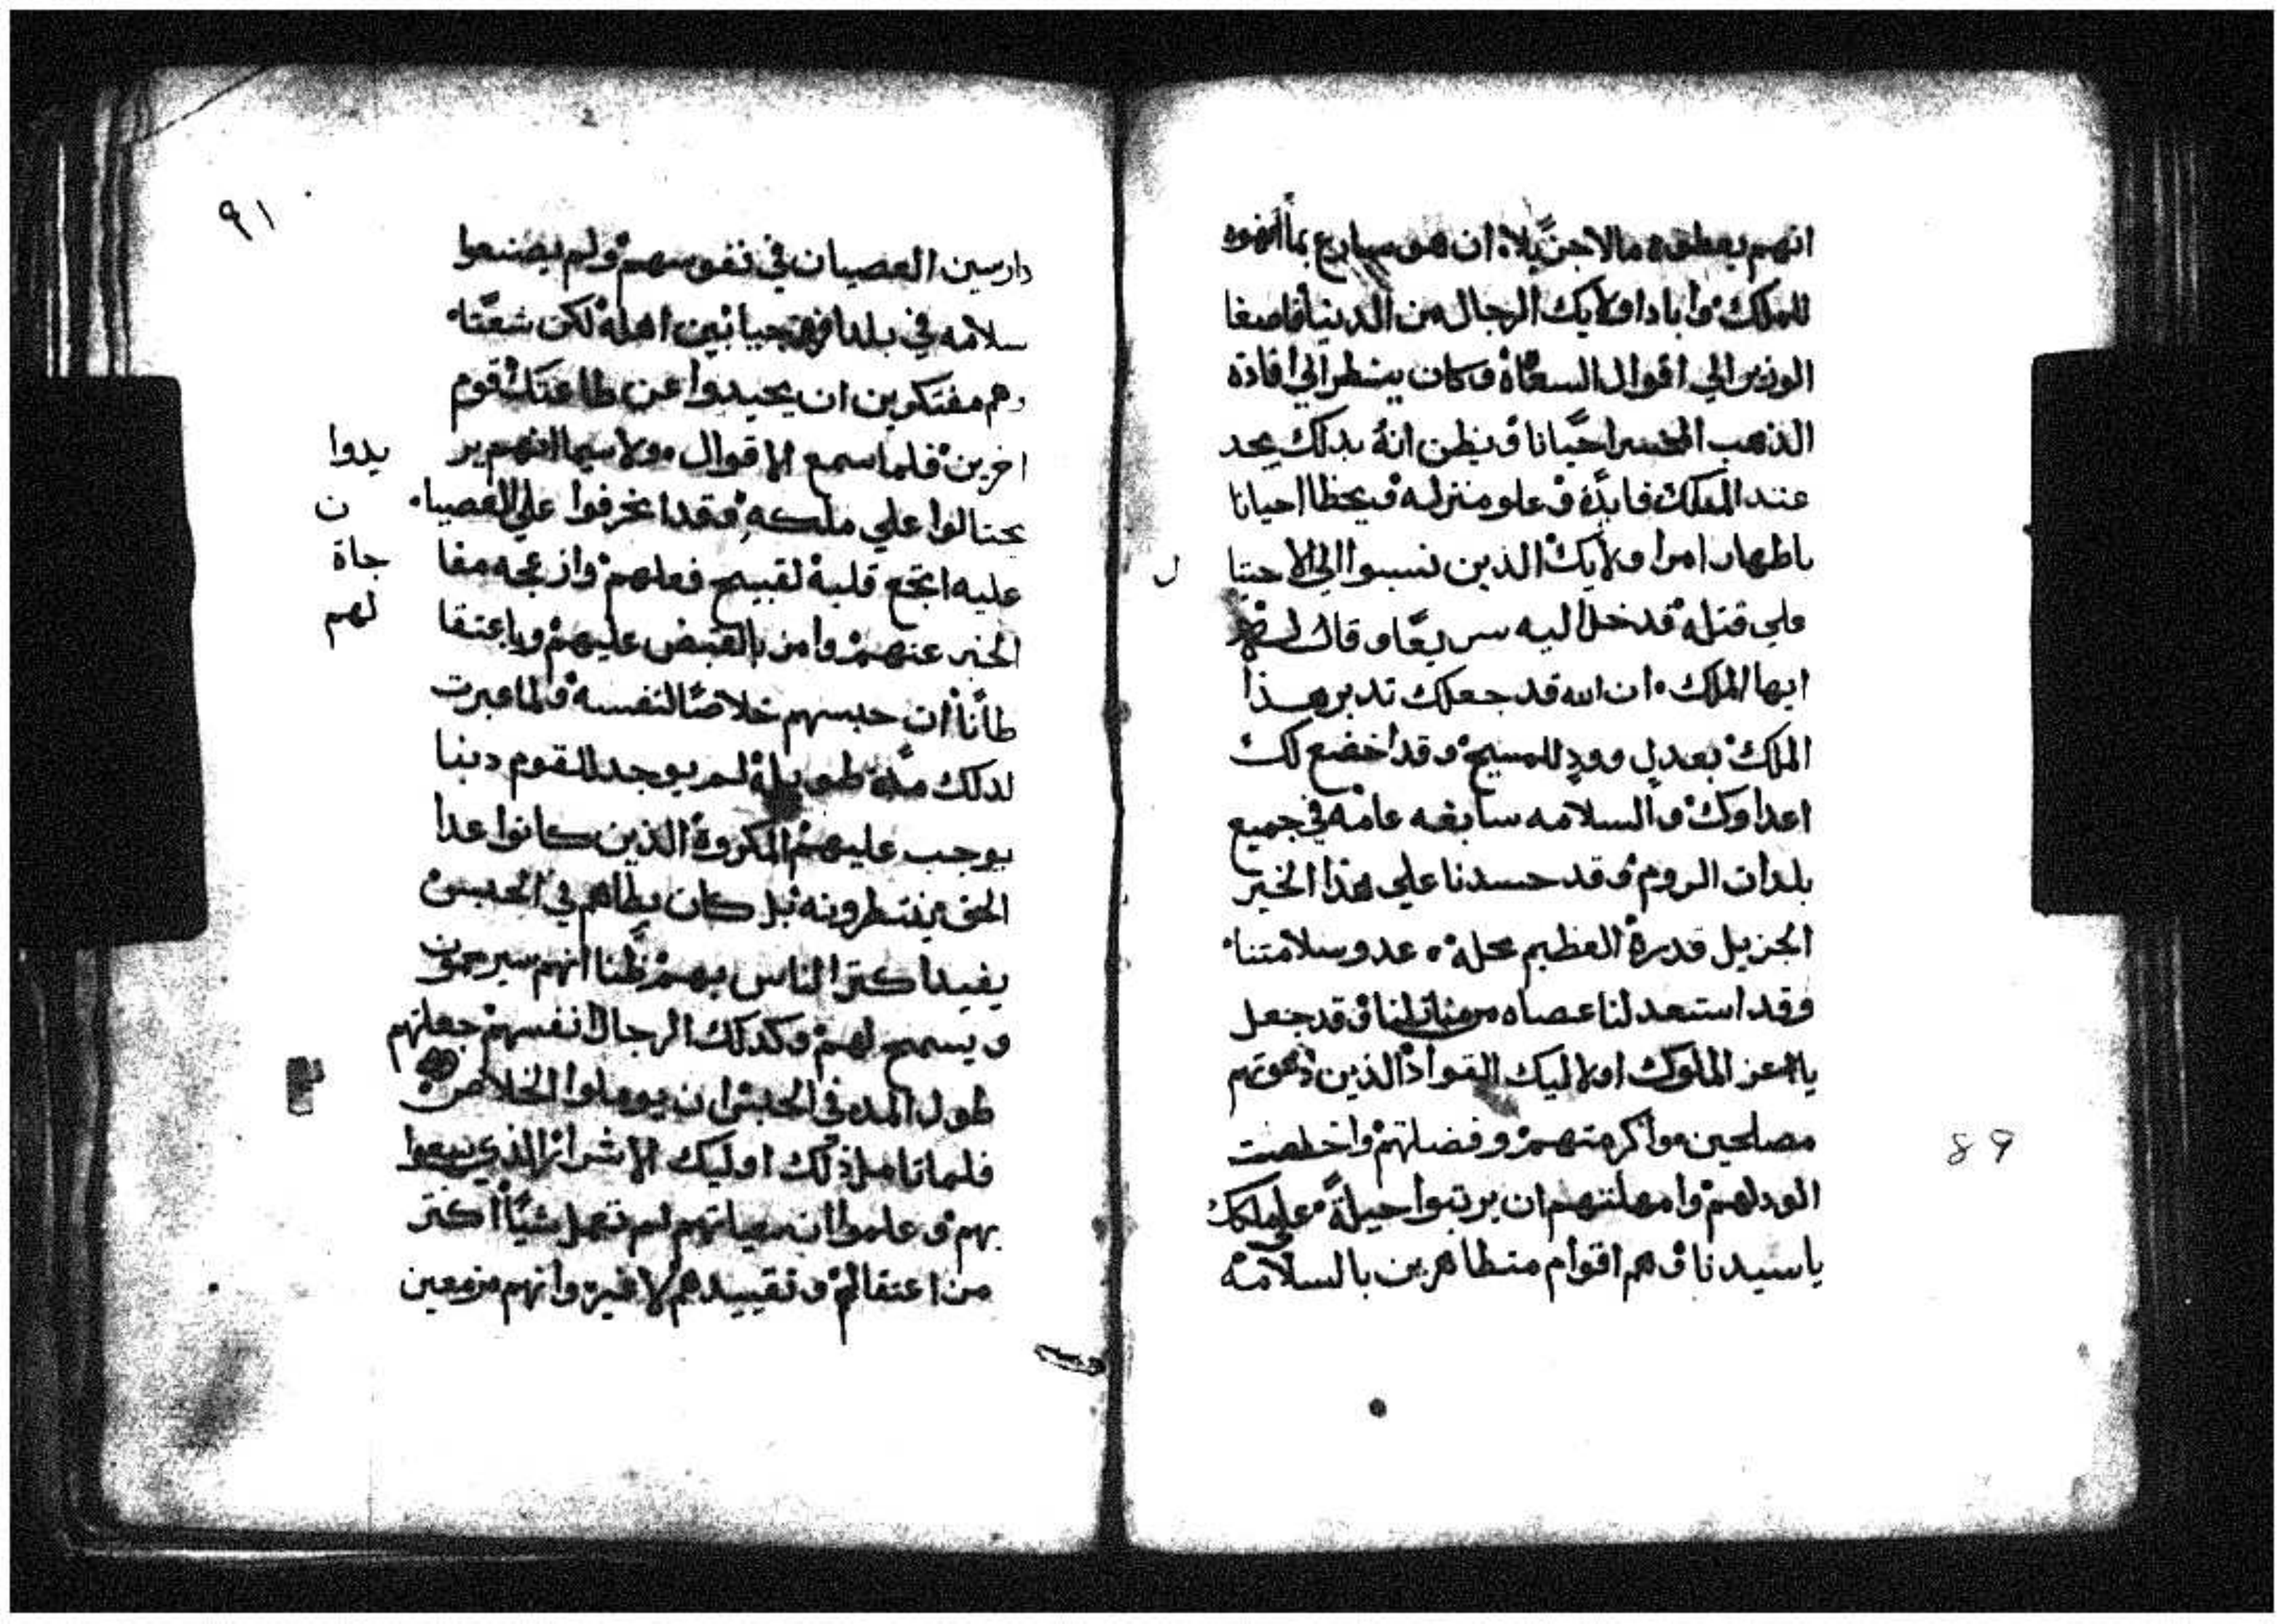 انهم يعطوه مالا جزيلا ان هو سارع بما انهوه
للملك وابادا ولايك الرجال من الدنيا فاصغا
الوزير الي اقوال السعاة وكان ينتظر الي افادة
الذهب المخسر احيانا ويظن انه بدلك يجد
عند الملك فايدة وعلو منزله ويحظا احيانا
باطهار امر اولايك الذين نسبوا الي الاحتيا
ل
علي قتله فدخل اليه سريعا وقال له
ايها الملك ان الله قد جعلك تدبر هذا
الملك بعدل وود للمسيح وقد اخضع لك
اعداوك والسلامه سابغه عامه في جميع
بلدان الروم وقد حسدنا علي هذا الخير
الجزيل قدره العظيم محله عدو سلامتنا
وقد استعد لنا عصاه وقد جعل
يا اعز الملوك اولاليك القواد الذين دعوتهم
مصلحين واكرمتهم وفضلتهم واخلصت
89
الود لهم وامهلتهم ان يرتبوا حيلة علي ملكك
يا سيدنا وهم اقوام متظاهرين بالسلامه
٩١
دارسين العصيان في نفوسهم ولم يصنعوا
سلامه في بلد افروجيا بين اهله لكن شعثا
وهم مفتكرين ان يحيدوا عن طاعتك قوم
اخرين فلما سمع الاقوال ولا سيما انهم ير
يدوا
يحتالوا علي ملكه وقد انحرفوا علي العصيا
ن
عليه اتجع قلبه لقبيح فعلهم وازعجه مفا
جاة
الخبر عنهم وامر بالقبض عليهم وباعتقا
لهم
طانا ان حبسهم خلاصا لنفسه ولما عبرت
لدلك مده طويلة لم يوجد للقوم دينا
يوجب عليهم المكروه الذين كانوا عدا
الحق ينتظرونه بل كان بطاهم في الحبس
يفيد اكتر الناس بهم ظنا انهم سيرحمون
ويسمح لهم وكدلك الرجال انفسهم جعلتهم
طول المده في الحبس ان يوملوا الخلاص
فلما تامل ذلك اوليك الاشرار الذي سعوا
بهم وعلموا ان سعايتهم لم تعمل شيا اكتر
من اعتقالهم وتقييدهم لا غير وانهم مزمعين